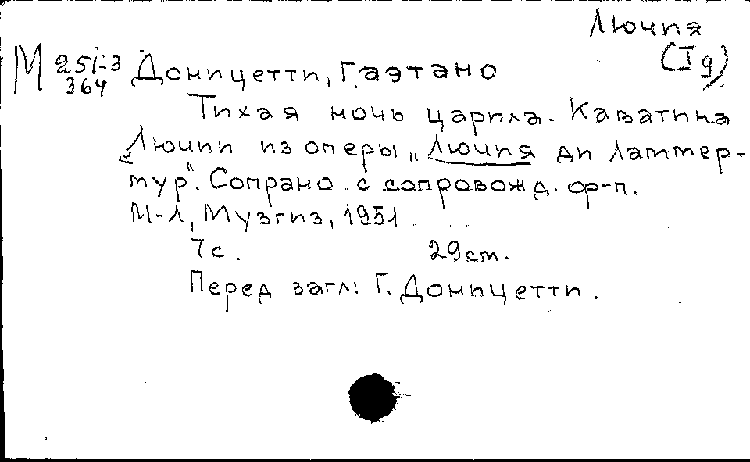 Лючия
(I д)
М 251-3
364
Доницетти, Гаэтано
Тихая ночь царила. Каватина
Лючии из оперы „Лючия ди Ламмер-
мур". Сопрано с сопровожд. ф-п.
М-Л, Музгиз, 1951.
7с. 29см.
Перед загл: Г. Доницетти.